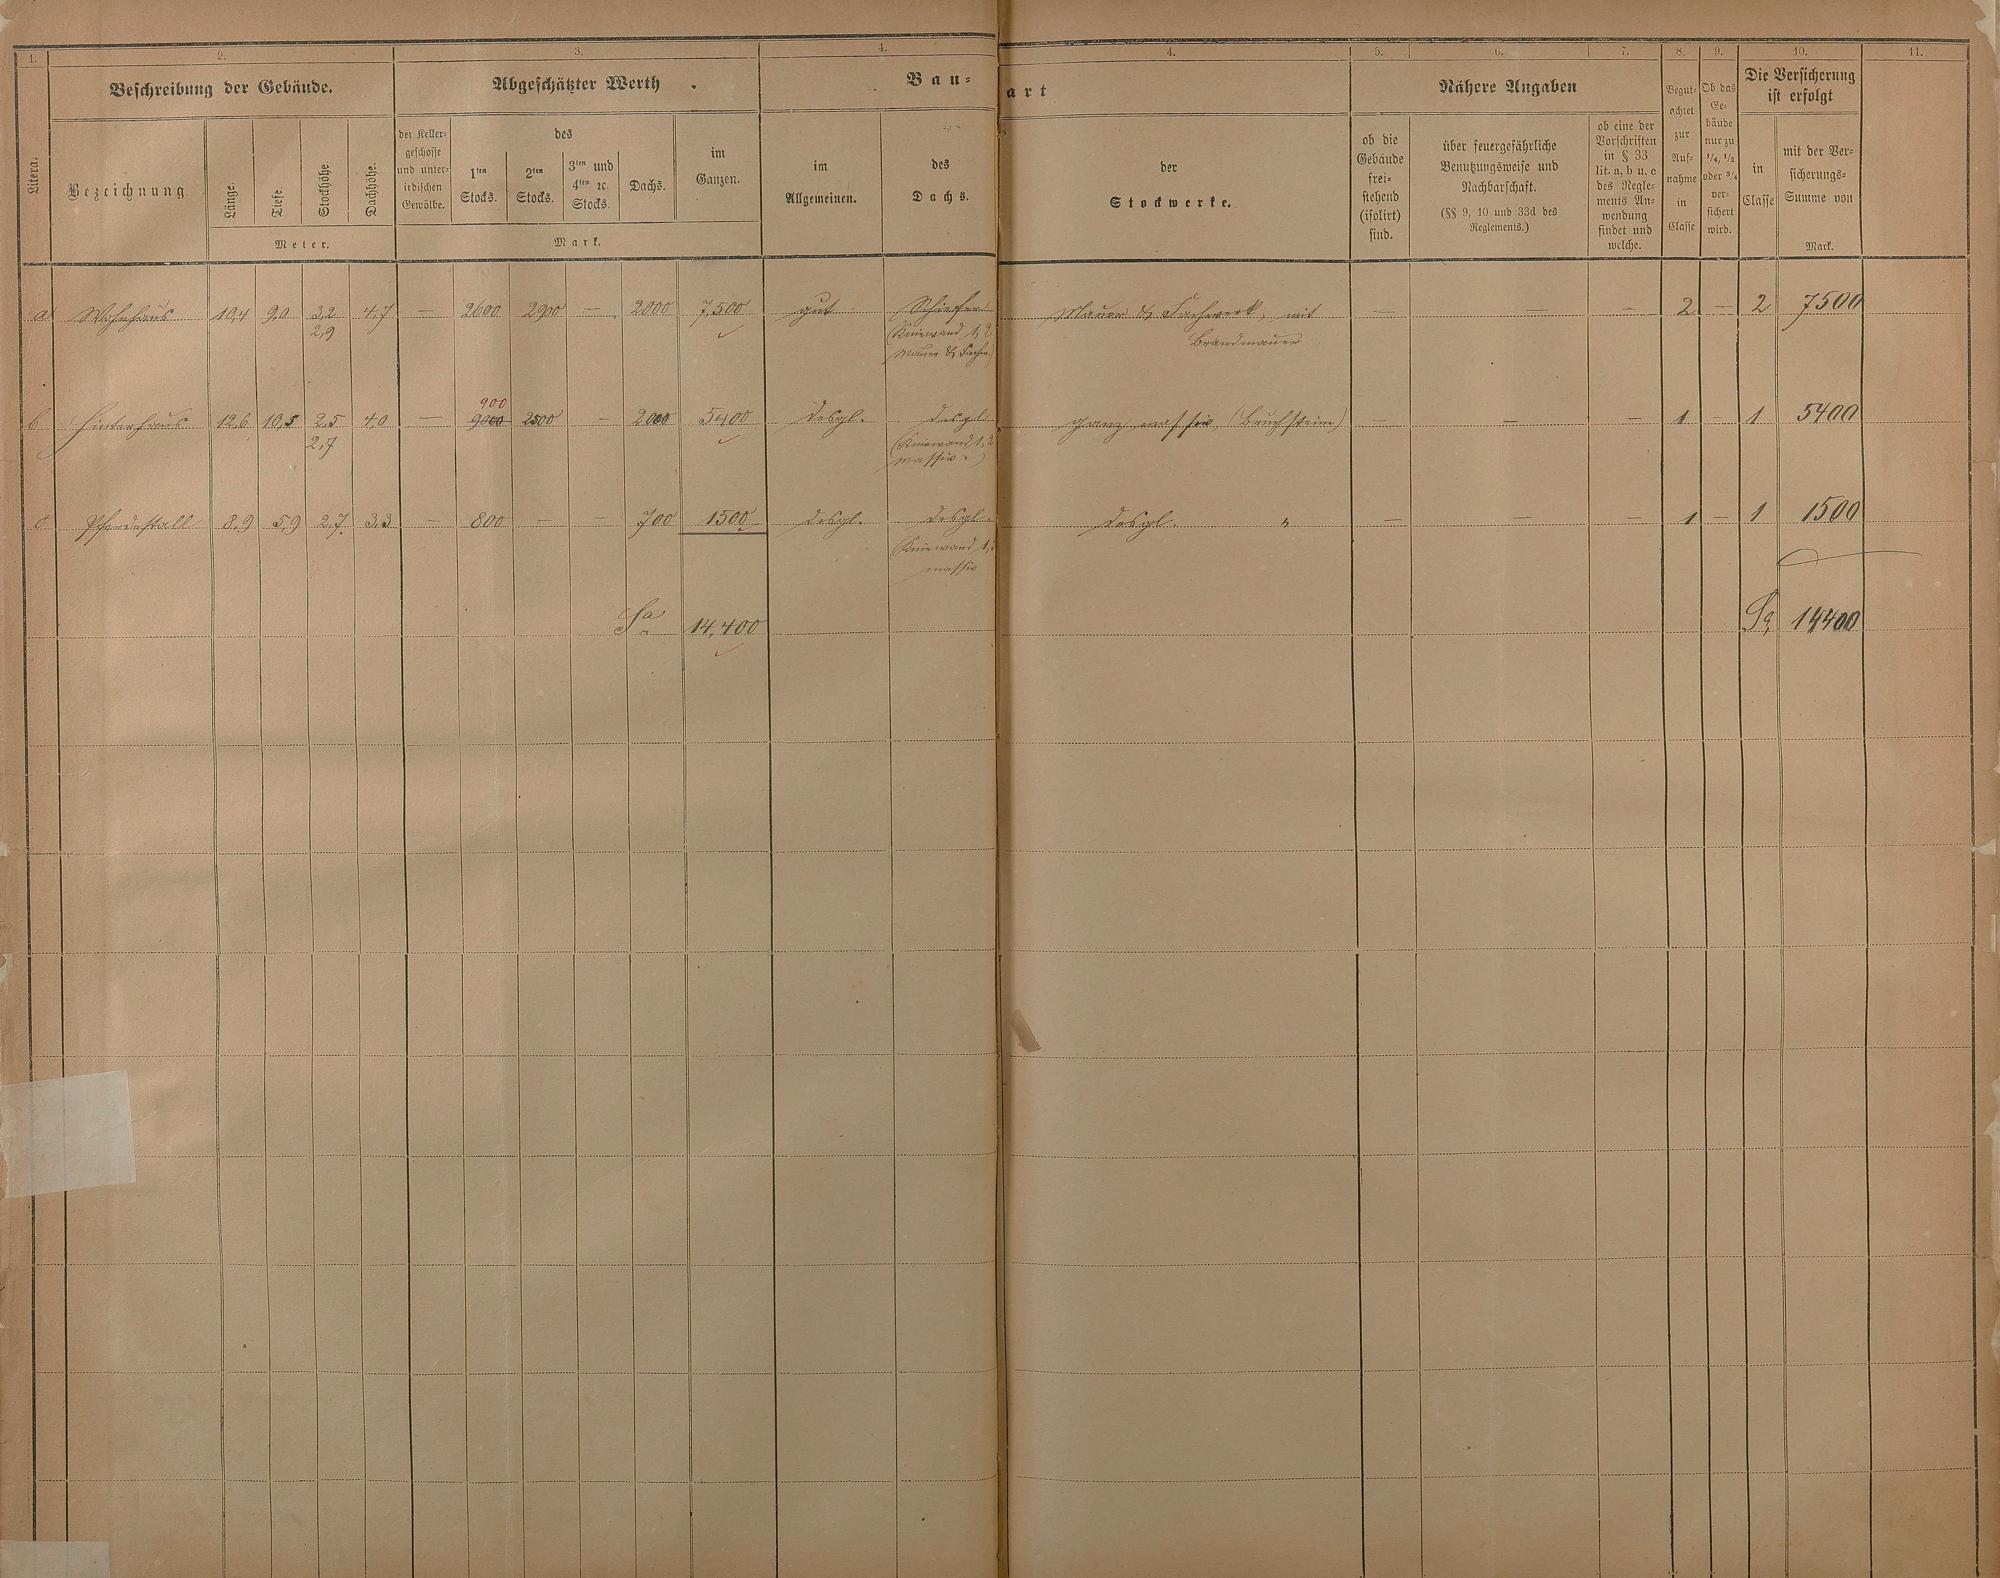 1. 2. 3. 4. 4. 5. 6. 7. 8. 9. 10. 11.
Beschreibung der Gebäude.
Abgeschätzter Werth
Bau-
art
Nähere Angaben
Die Versicherung
ist erfolgt
Litera.
Bezeichnung
Länge.
Tiefe.
Stockhöhe.
Dachhöhe.
Meter.
der Keller-
geschosse
und unter-
irdischen
Gewölbe.
des
1ten
Stocks.
2ten
Stocks.
3ten und
4ten ꝛc.
Stocks.
Dachs.
im
Ganzen.
Mark.
im
Allgemeinen.
des
Dachs.
der
Stockwerke.
ob die
Gebäude
frei-
stehend
(isolirt)
sind.
über feuergefährliche
Benutzungsweise und
Nachbarschaft.
(§§ 9, 10 und 33d des
Reglements.)
ob eine der
Vorschriften
in § 33
lit. a, b u. c
des Regle-
ments An-
wendung
findet und
welche.
Begut-
achtet
zur
Auf-
nahme
in
Classe
Ob das
Ge-
bäude
nur zu
1/4, 1/2
oder 3/4
ver-
sichert
wird.
in
Classe
mit der Ver-
sicherungs-
Summe von
Mark.
a Wohnhaus 10,4 9,0 3,2 4,7 — 2600 2900 — 2000 7,500 gut Schiefer Mauer & Fachwerk, mit — — — 2 — 2 7500
2,9 (Kniewand 1,2 Brandmauer
Mauer & Fachw.)
900
b Hinterhaus 12,6 10,5 2,5 4,0 — 9000 2500 — 2000 5400 desgl. desgl. ganz massiv (Bruchsteine) — — — 1 — 1 5400
2,7 (Kniewand 1,2
massiv.)
c Pferdestall 8,9 5,9 2,7 3,3 — 800 — — 700 1500 desgl. desgl. desgl. " — — — 1 — 1 1500
(Kniewand 1,2
massiv
Sa 14,400 Sa 14400